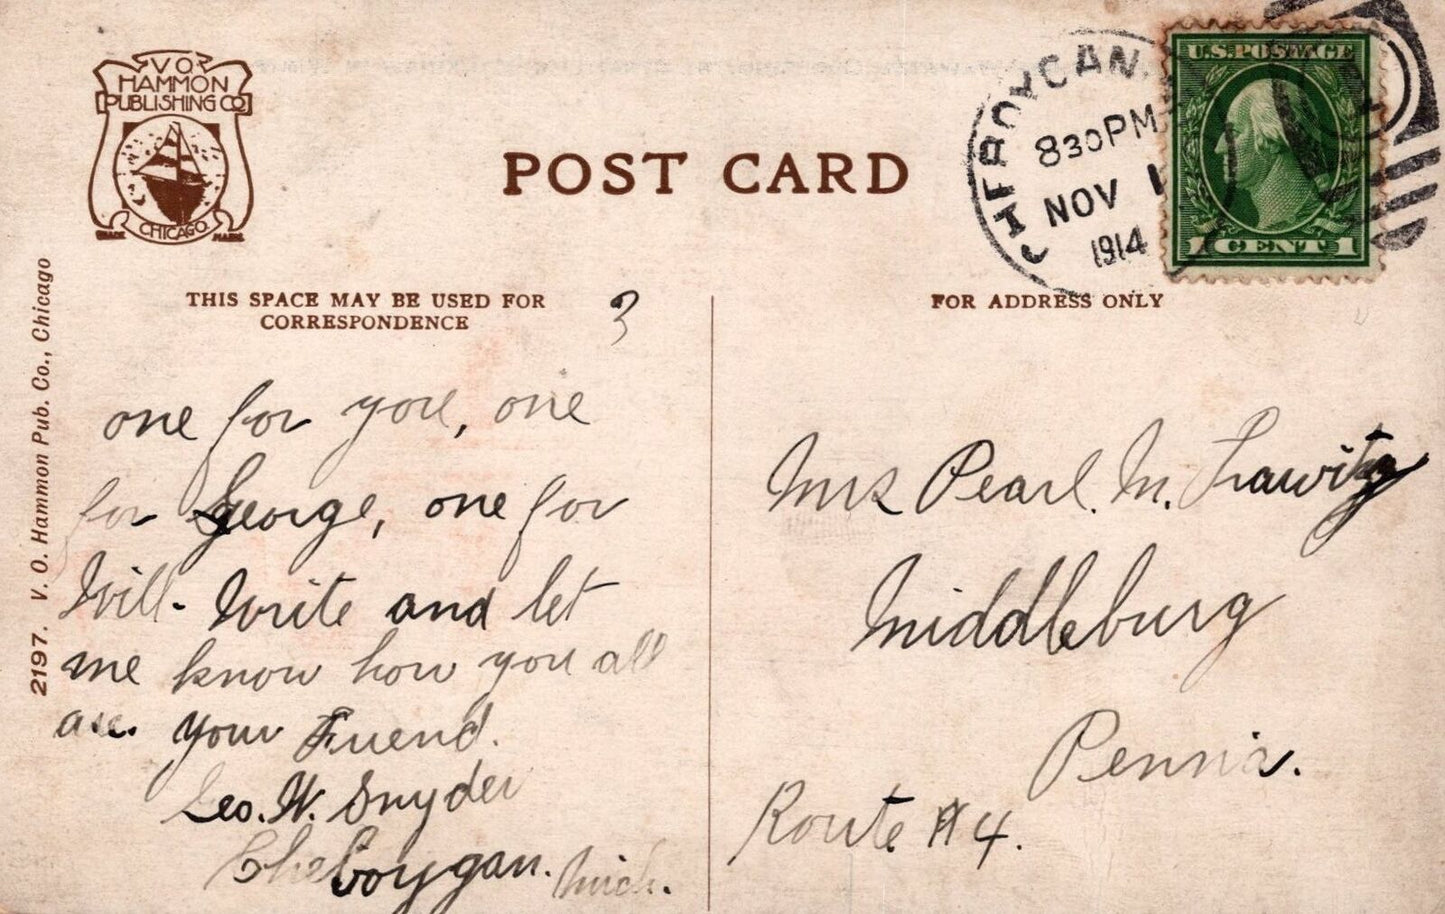 V.O.
HAMMON
PUBLISHING CO.
CHICAGO
TRADE MARK
POST CARD
CHEBOYGAN
830PM
NOV 1
1914
U.S. POSTAGE
1 CENT 1
THIS SPACE MAY BE USED FOR
CORRESPONDENCE
3
FOR ADDRESS ONLY
2197. V. O. Hammon Pub. Co., Chicago
one for you, one
for George, one for
Will. Write and let
me know how you all
are. Your Friend.
Geo. W. Snyder
Cheboygan. Mich.
Mrs Pearl. M.
Middleburg
Penn'a.
Route #4.